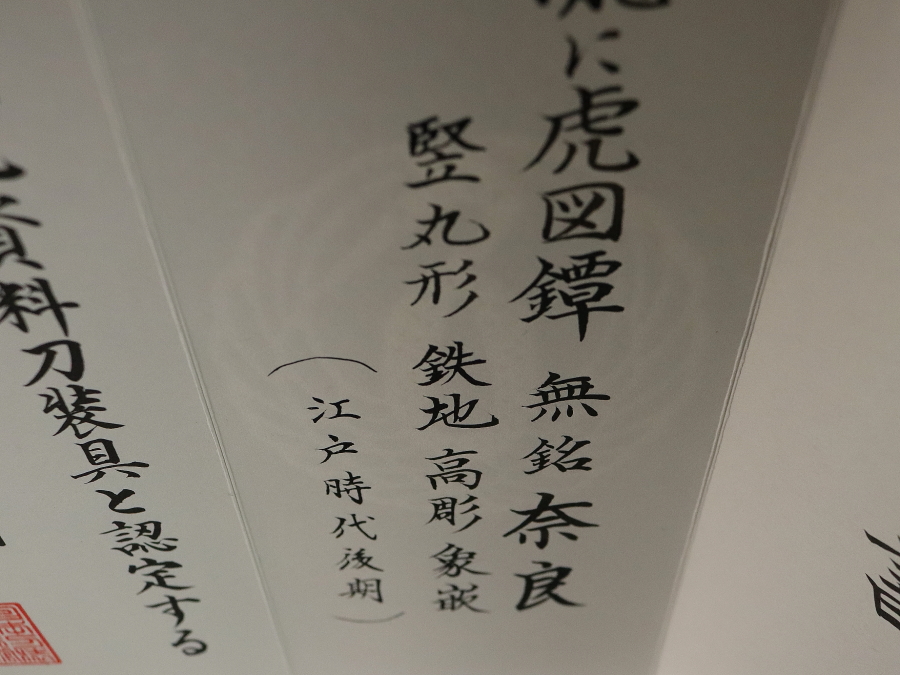 に虎図鐔 無銘 奈良
竪丸形 鉄地高彫象嵌
(江戸時代後期)
資料刀装具と認定する